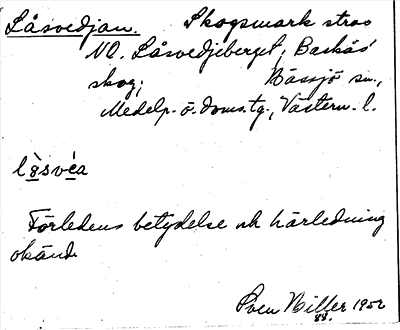 Låsvedjan. Skogsmark strax
NO. Låsvedjeberget, Backås'
skog; Bässjö sn.,
Medelp. ö. doms.tg., Västern. l.
Förledens betydelse och härledning
okänd.
Sven Hiller 1952